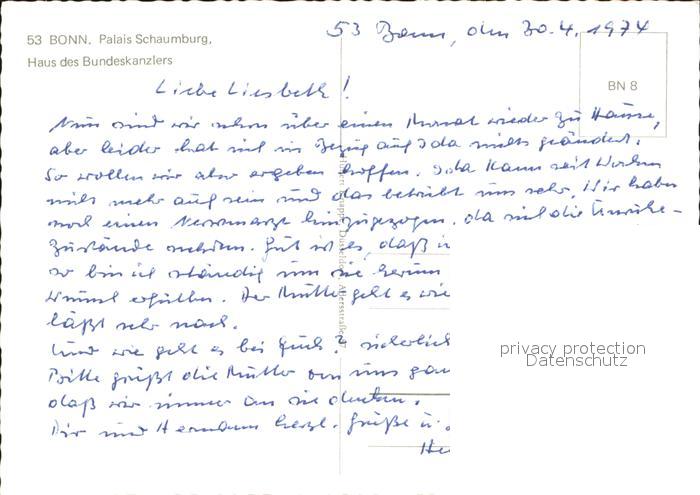 53 Bonn, den 30.4.1974
53 BONN, Palais Schaumburg,
Haus des Bundeskanzlers
BN 8
Liebe Liesbeth!
Nun sind wir schon über einen Monat wieder zu Hause,
aber leider hat sich in Bezug auf Ida nichts geändert.
So wollen wir aber ergeben hoffen. Ida kann seit Wochen
nicht mehr auf sein und das betrübt uns sehr. Wir haben
noch einen Nervenarzt hinzugezogen, da sich die Unruhe-
zustände mehren. Gut ist es, daß i
so bin ich ständig um sie herum
Wunsch erfüllen. Der Mutter geht es wie
läßt sehr nach.
Und wie geht es bei Euch? sicherlich
Bitte grüßt die Mutter von uns
daß wir immer an sie denken.
Dir und Hermann herzl. Grüße u.
privacy protection
Datenschutz